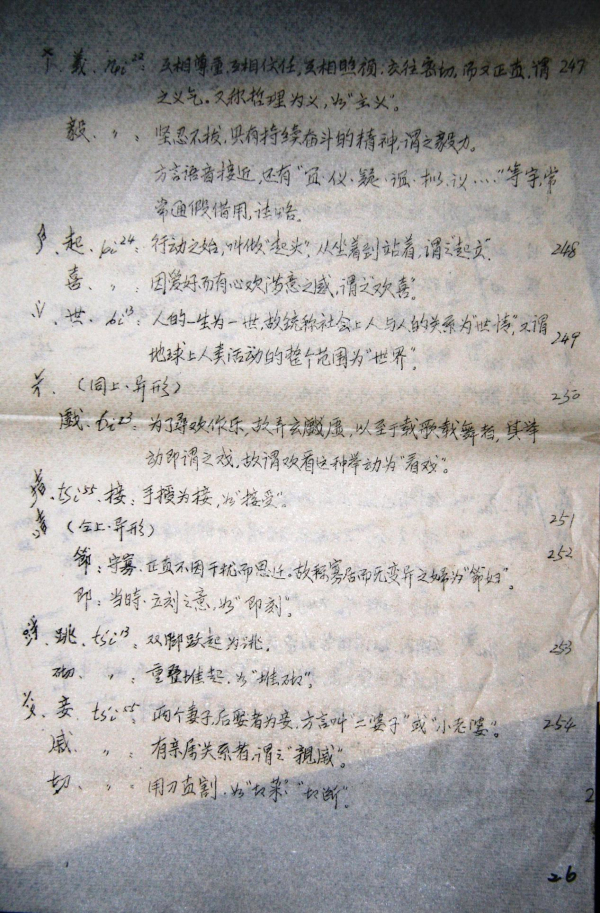 義. ȵi²²: 互相尊重,互相信任,互相照顾.去往密切,而又正直,谓 247
之义气。又称哲理为义,如"主义"。
毅. 〃 : 坚忍不拔,具有持续奋斗的精神,谓之毅力。
方言语音接近,还有"宜.仪.疑.谊.拟.议……"等字,常
常通假借用,注略.
起. 24: 行动之始,叫做"起头",从坐着到站着,谓之"起立". 248
喜. 〃 : 因爱好而有心欢满意之感,谓之"欢喜".
世. 13: 人的一生为一世,故统称社会上人与人的关系为"世情",又谓
地球上人类活动的整个范围为"世界". 249
(同上.异形) 250
戲. 13: 为了尋欢作乐,故弄玄 ,以至于载歌载舞者,其举
动即谓之戏,故谓欢看这种举动为"看戏".
tsi⁵⁵. 接: 手授为接,如"接受"。
(仝上.异形) 251
節: 守寡.正直不因干扰而思迁.故称寡居而无变异之婦为"節妇". 252
即: 当时.立刻之意,如"即刻".
跳. tsi¹³: 双脚跃起为跳. 253
砌. 〃 : 重叠堆起,如"堆砌".
妾. tsi⁵⁵: 两个妻子,后娶者为妾.方言叫"二婆子"或"小老婆". 254
戚. 〃 : 有亲属关系者,谓之"親戚".
切. 〃 : 用刀直割.如"切菜""切断".
26